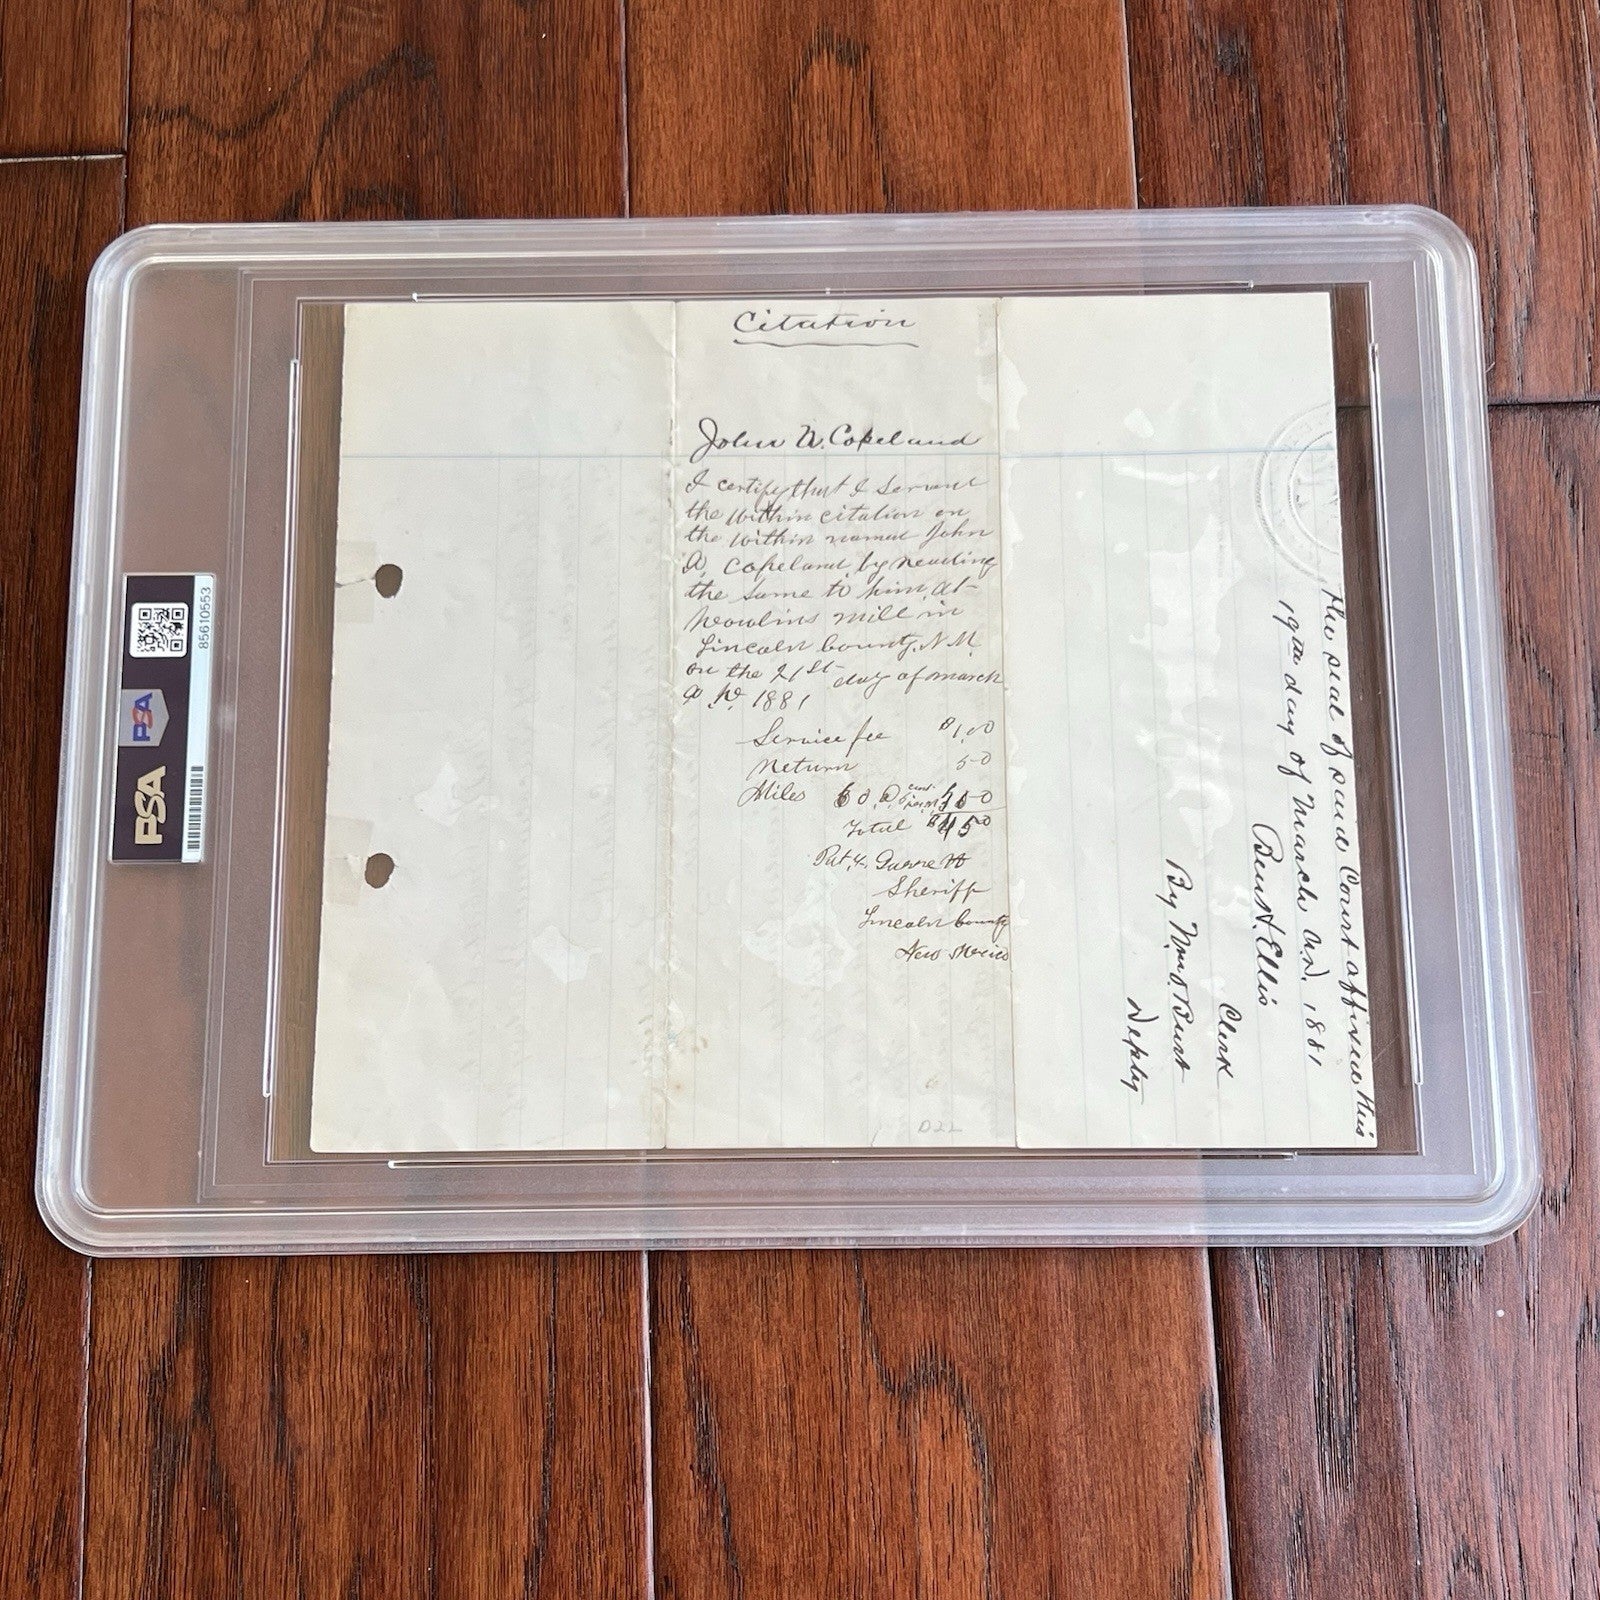 Citation
John N. Copeland
I certify that I served
the within citation on
the within named John
A. Copeland by reading
the same to him at
Nowlins mill in
Lincoln County, N.M.
on the 21st day of march
A D. 1881
Service fee $1.00
Return 50
Miles 60 @ 5 cent
Total
Pat. F. Garrett
Sheriff
Lincoln County
New Mexico
D22
the seal of said Court affixed this
19th day of March A.D. 1881
Ben H. Ellis
Clerk
By Wm S. Burt
Depty
85610553
PSA
PSA